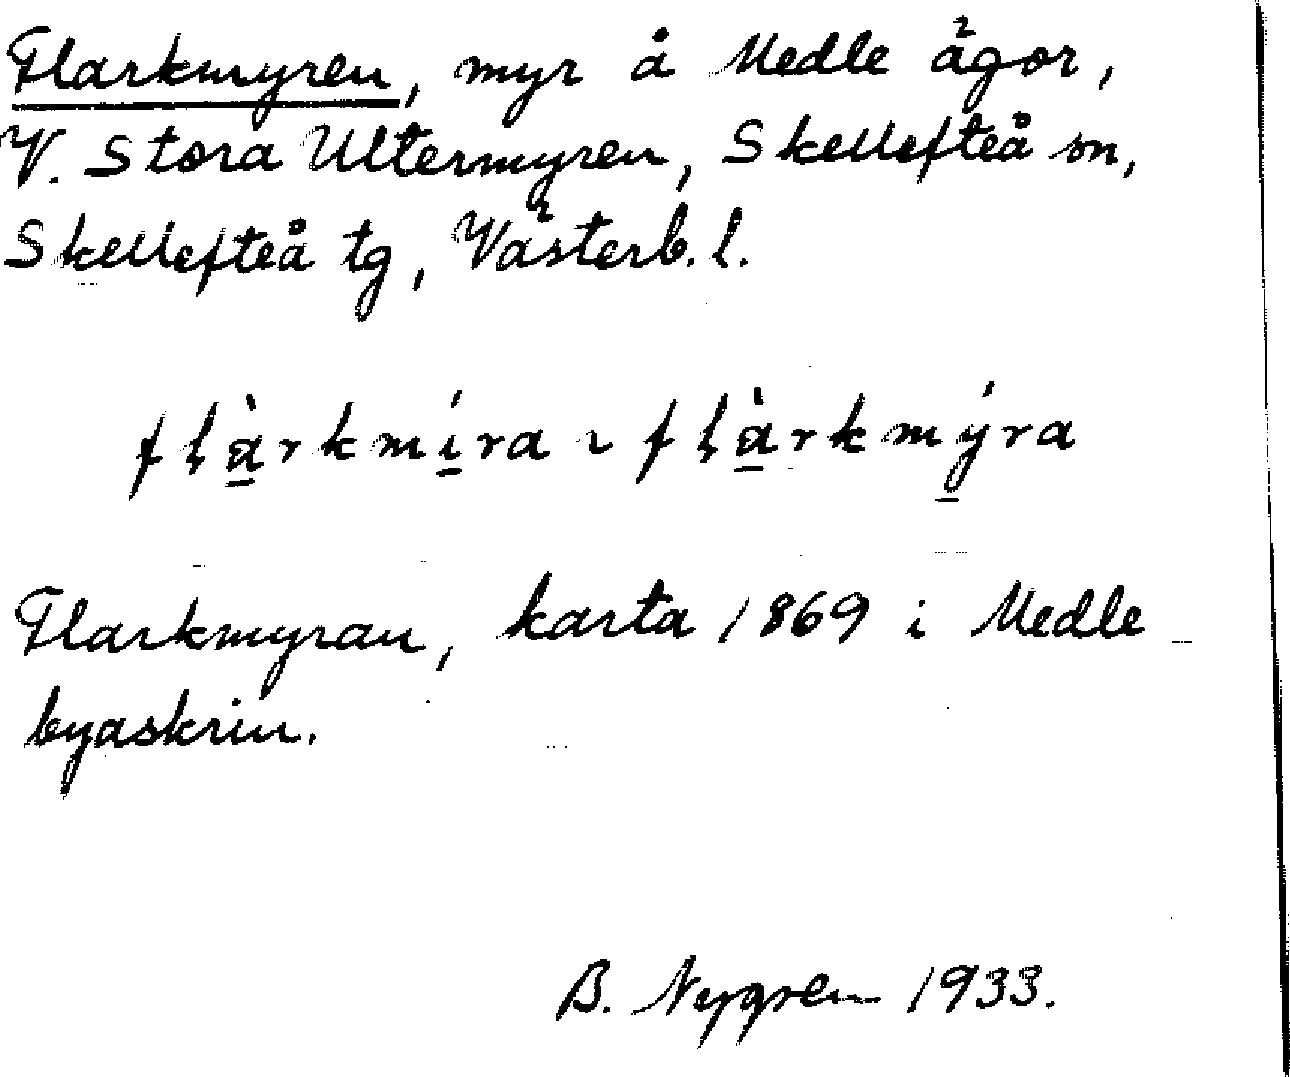 Flarkmyren, myr å Medle ägor,
V. Stora Ultermyren, Skellefteå sn,
Skellefteå tg, Västerb. l.
fḷà̱rkmí̱ra ~ fḷà̱rkmý̱ra
Flarkmyran, karta 1869 i Medle
byaskrin.
B. Nygren 1933.